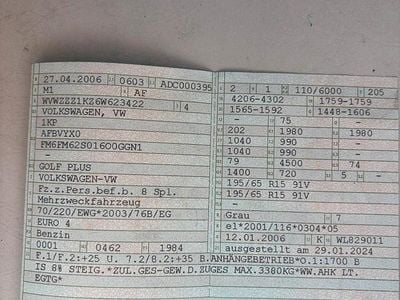 27.04.2006 0603 ADC000395
M1 AF
WVWZZZ1KZ6W623422 4
VOLKSWAGEN, VW
1KP
AFBVYX0
FM6FM62S016OOGGN1
-
GOLF PLUS
VOLKSWAGEN-VW
Fz.z.Pers.bef.b. 8 Spl.
Mehrzweckfahrzeug
70/220/EWG*2003/76B/EG
EURO 4
Benzin
0001 0462 1984
2 1 110/6000 205
4206-4302 1759-1759
1565-1592 1448-1606
- 75 -
202 1980 1980
1040 990 -
1040 990 -
79 4500 74
1400 720 5 -
195/65 R15 91V
195/65 R15 91V
-
Grau 7
e1*2001/116*0304*05
12.01.2006 K WL829011
ausgestellt am 29.01.2024
F.1/F.2:+25 U. 7.2/8.2:+35 B.ANHÄNGEBETRIEB*O.1:1700 B
IS 8% STEIG.*ZUL.GES-GEW.D.ZUGES MAX.3380KG*WW.AHK LT.
EGTG*